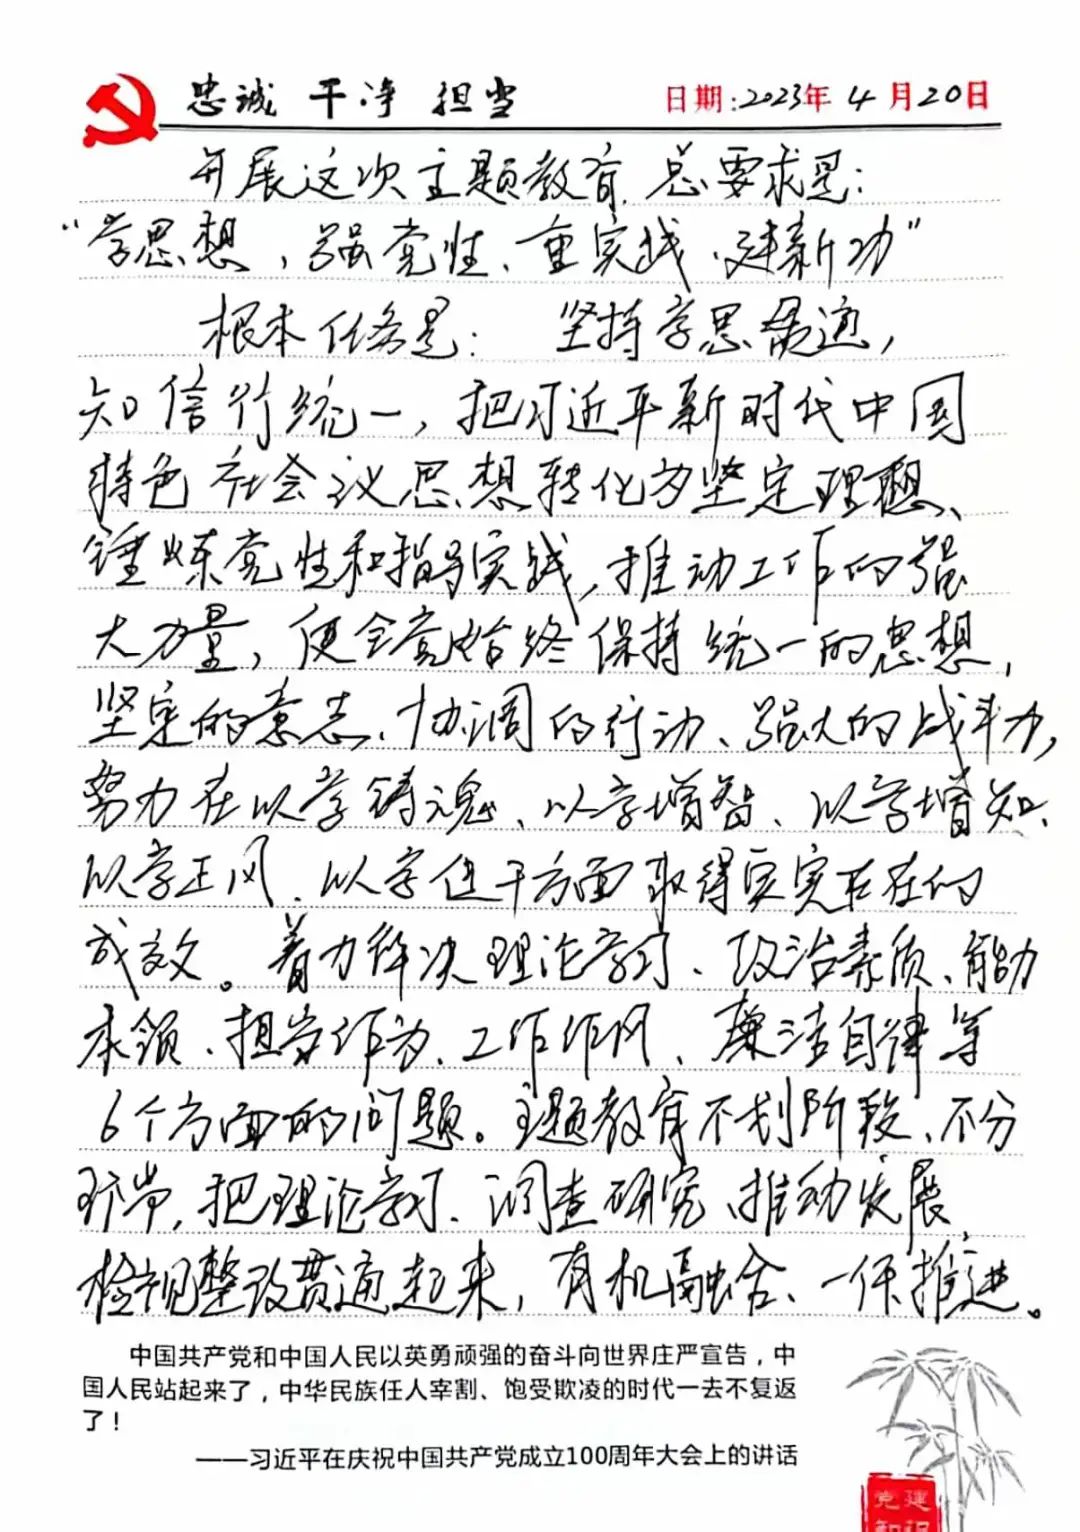 忠诚 干净 担当
日期:2023年4月20日
开展这次主题教育,总要求是:
“学思想、强党性、重实践、建新功”
根本任务是: 坚持学思用贯通,
知信行统一,把习近平新时代中国
特色社会主义思想转化为坚定理想、
锤炼党性和指导实践,推动工作的强
大力量,使全党始终保持统一的思想、
坚定的意志、协调的行动、强大的战斗力,
努力在以学铸魂、以学增智、以学增知、
以学正风、以学促干方面取得实实在在的
成效。着力解决理论学习、政治素质、能力
本领、担当作为、工作作风、廉洁自律等
6个方面的问题。主题教育不划阶段、不分
环节,把理论学习、调查研究、推动发展、
检视整改贯通起来,有机融合、一体推进。
中国共产党和中国人民以英勇顽强的奋斗向世界庄严宣告,中
国人民站起来了,中华民族任人宰割、饱受欺凌的时代一去不复返
了!
——习近平在庆祝中国共产党成立100周年大会上的讲话
党建
知识